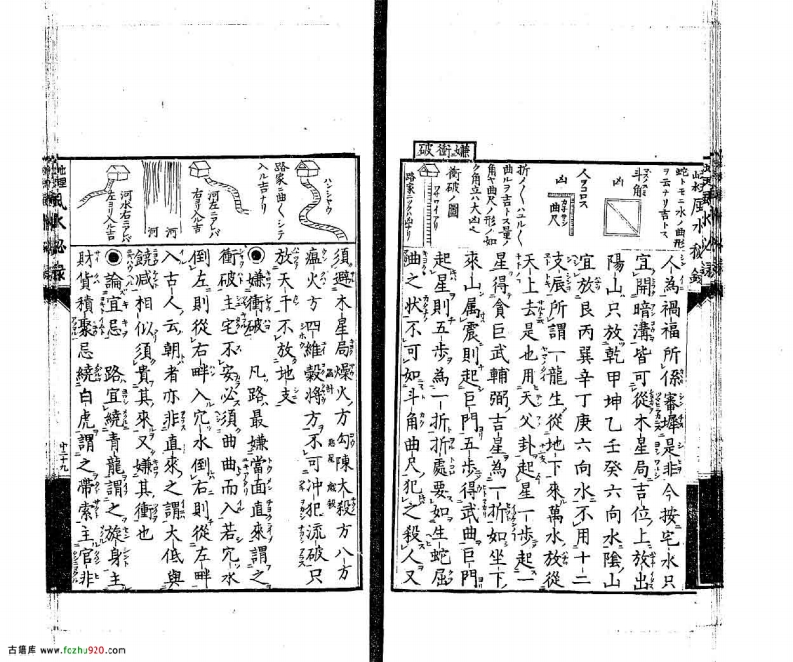 嫌衝破
蛇トモニ水ノ曲形
ヲ云ナリ吉トス
斗角
人ヲコロス
凶
曲尺
凶
折ノ
曲ルヲ吉トス
角ヤ曲尺ノ形ノ如
ク角立ハ大凶也
衝破ノ圖
人為禍福所係審墀是非今按宅水只
宜開暗溝皆可從木星局吉位上放出
陽山只放乾甲坤乙壬癸六向水陰山
宜放艮丙巽辛丁庚六向水不用十二
支辰所謂一龍生從地下來萬水放從
天上去是也用天父卦起星一步起一
星得貪巨武輔弼吉星為一折如坐下
來山屬震則起巨門五步得武曲巨門
起星則五步為一折折處要如生蛇屈
曲之狀不可如斗角曲尺犯之殺人又
地理風水秘錄
ハンシャウ
路家ニ曲ヽシテ
入ル吉ナリ
河左ニアレバ
右ヨリ入ル吉
河
河
河水右ニアレバ
左ヨリ入ル吉
須避木星局燥火方勾陳大殺方八方
瘟火方四維穀將方不可沖犯流破只
放天干不放地支
◉嫌衝破　凡路最嫌當面直來謂之
衝破主宅不安必須曲曲而入若穴水
倒左則從右畔入穴水倒右則從左畔
入古人云朝者亦非直來之謂大低與
饒减相似須貴其來又嫌其衝也
◉論宜忌　路宜繞青龍謂之旋身主
財貨積聚忌繞白虎謂之帶索主官非
古籍库 www.fczhu920.com